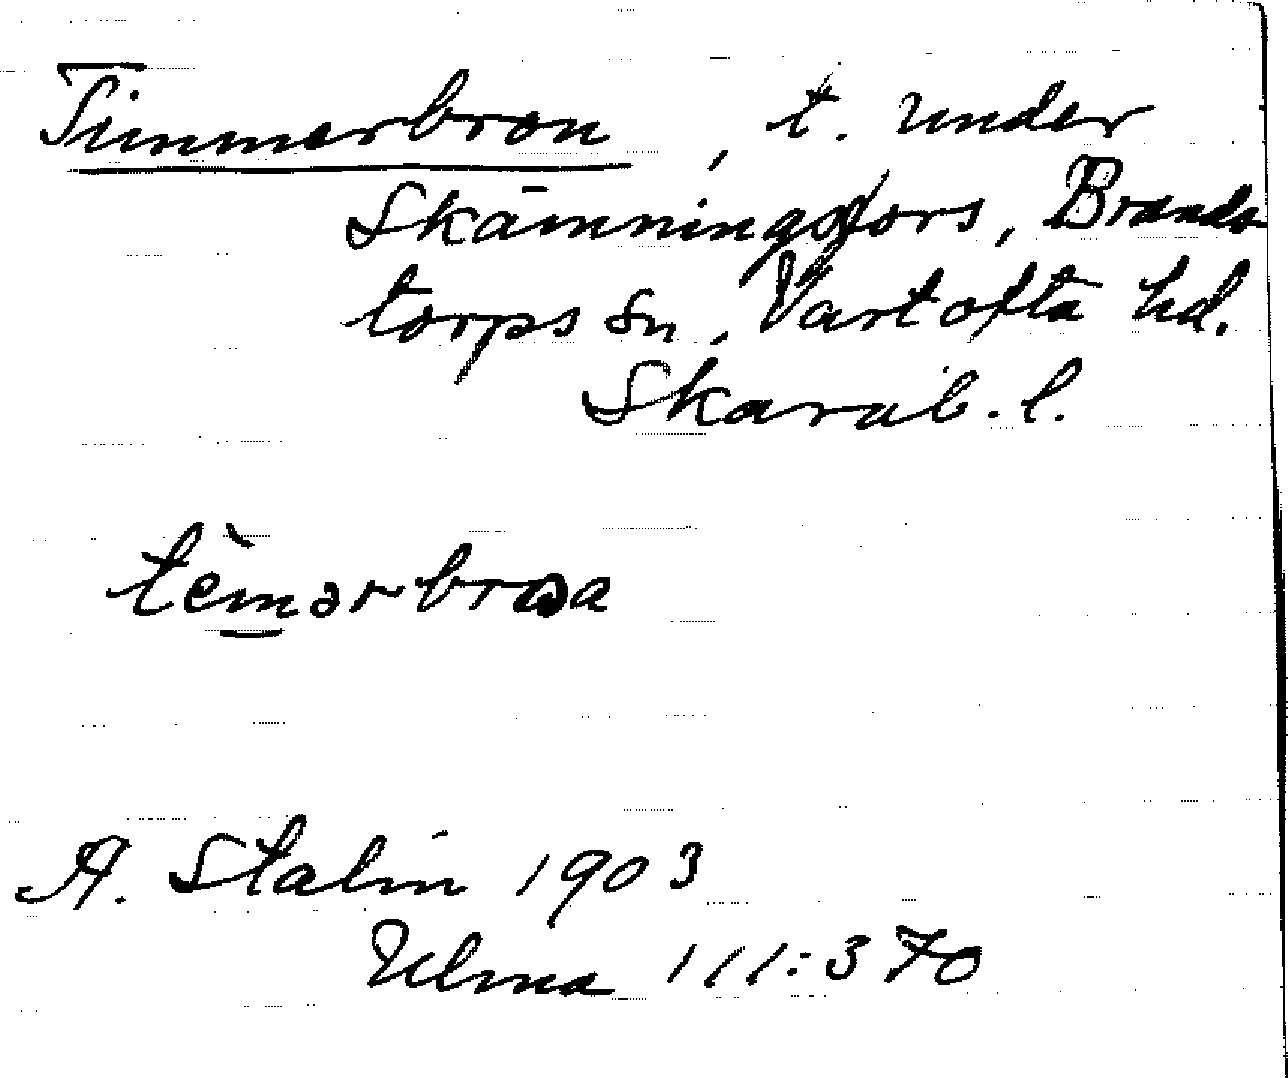 Timmerbron, t. under
Skämningsfors, Brands
torps sn, Vartofta hd.
Skarab. l.
A. Stalin 1903
Ulma 111:370